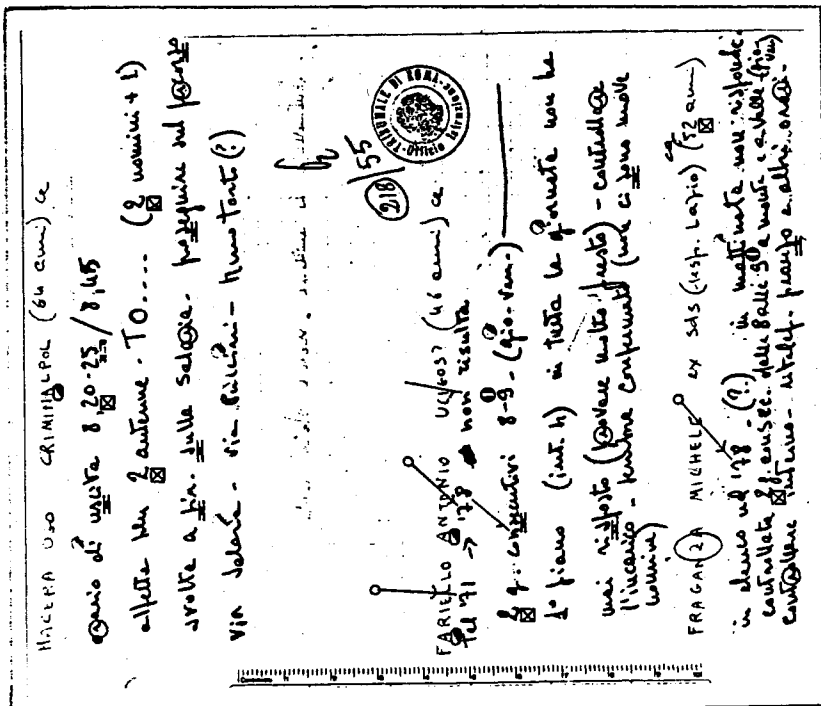 MACERA UGO CRIMINALPOL (64 anni) ca
orario di uscita 8,20-25 / 8,45
alfetta blu 2 antenne - TO.... (2 uomini + 1)
svolta a sin. sulla salaria - proseguire sul
via Salaria - via
218/55
TRIBUNALE DI ROMA - Ufficio Istruzione
FARIELLO ANTONIO UCIGOS? (46 anni) ca
Tel '71 → '78 non risulta
2 g. consecutivi 8-9 - (gio-ven.)
1° piano (int. 4) in tutta la giornata non ha
mai risposto (provare molto presto) - controllare
l'incarico - conferme (non ci sono nuove
nomine)
FRAGANZA MICHELE ex SdS (resp. Lazio) (52 anni) ca
in elenco nel '78 - (?) in mattinata non risponde.
controllata 2 g. consec. dalle 8 alle 9 a monte e a valle (gio-ven)
controllare - pranzo e altri orari -